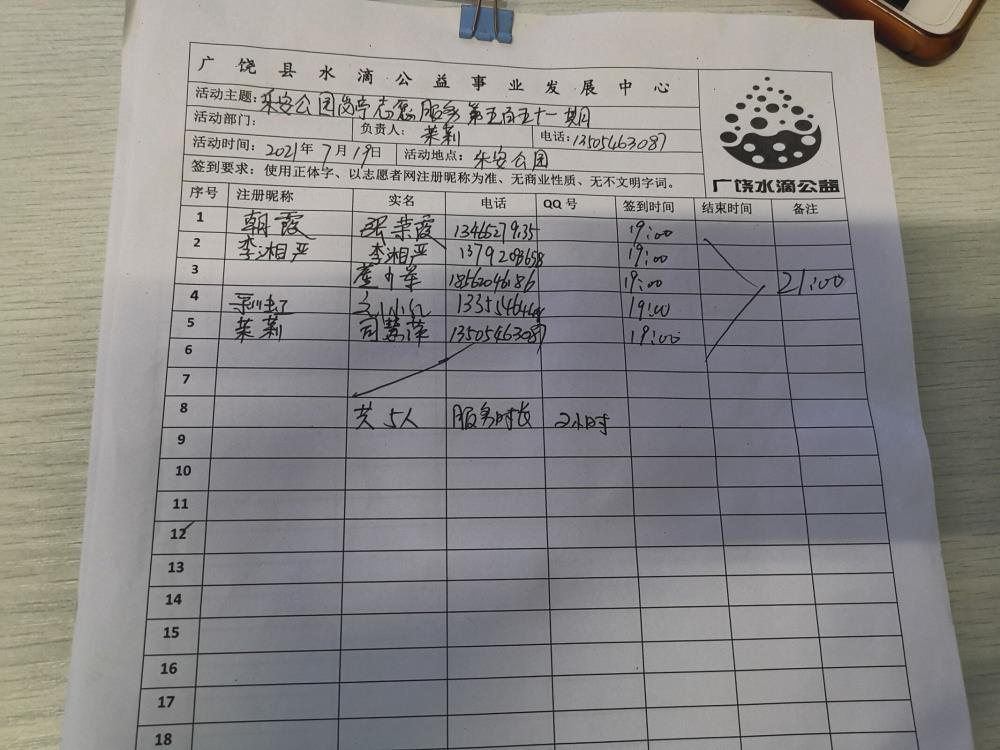 广饶县水滴公益事业发展中心
活动主题：乐安公园岗亭志愿服务第五百五十一期
活动部门： 负责人：茉莉 电话：13505463087
活动时间：2021年7月19日 活动地点：乐安公园
签到要求：使用正体字、以志愿者网注册昵称为准、无商业性质、无不文明字词。
广饶水滴公益
序号 注册昵称 实名 电话 QQ号 签到时间 结束时间 备注
1 朝霞 张荣霞 19:00
2 李湘严 李湘严 19:00
3 18562046186 19:00 21:00
4 19:00
5 茉莉 司慧萍 13505463087 19:00
6
7
8 共5人 服务时长 2小时
9
10
11
12
13
14
15
16
17
18